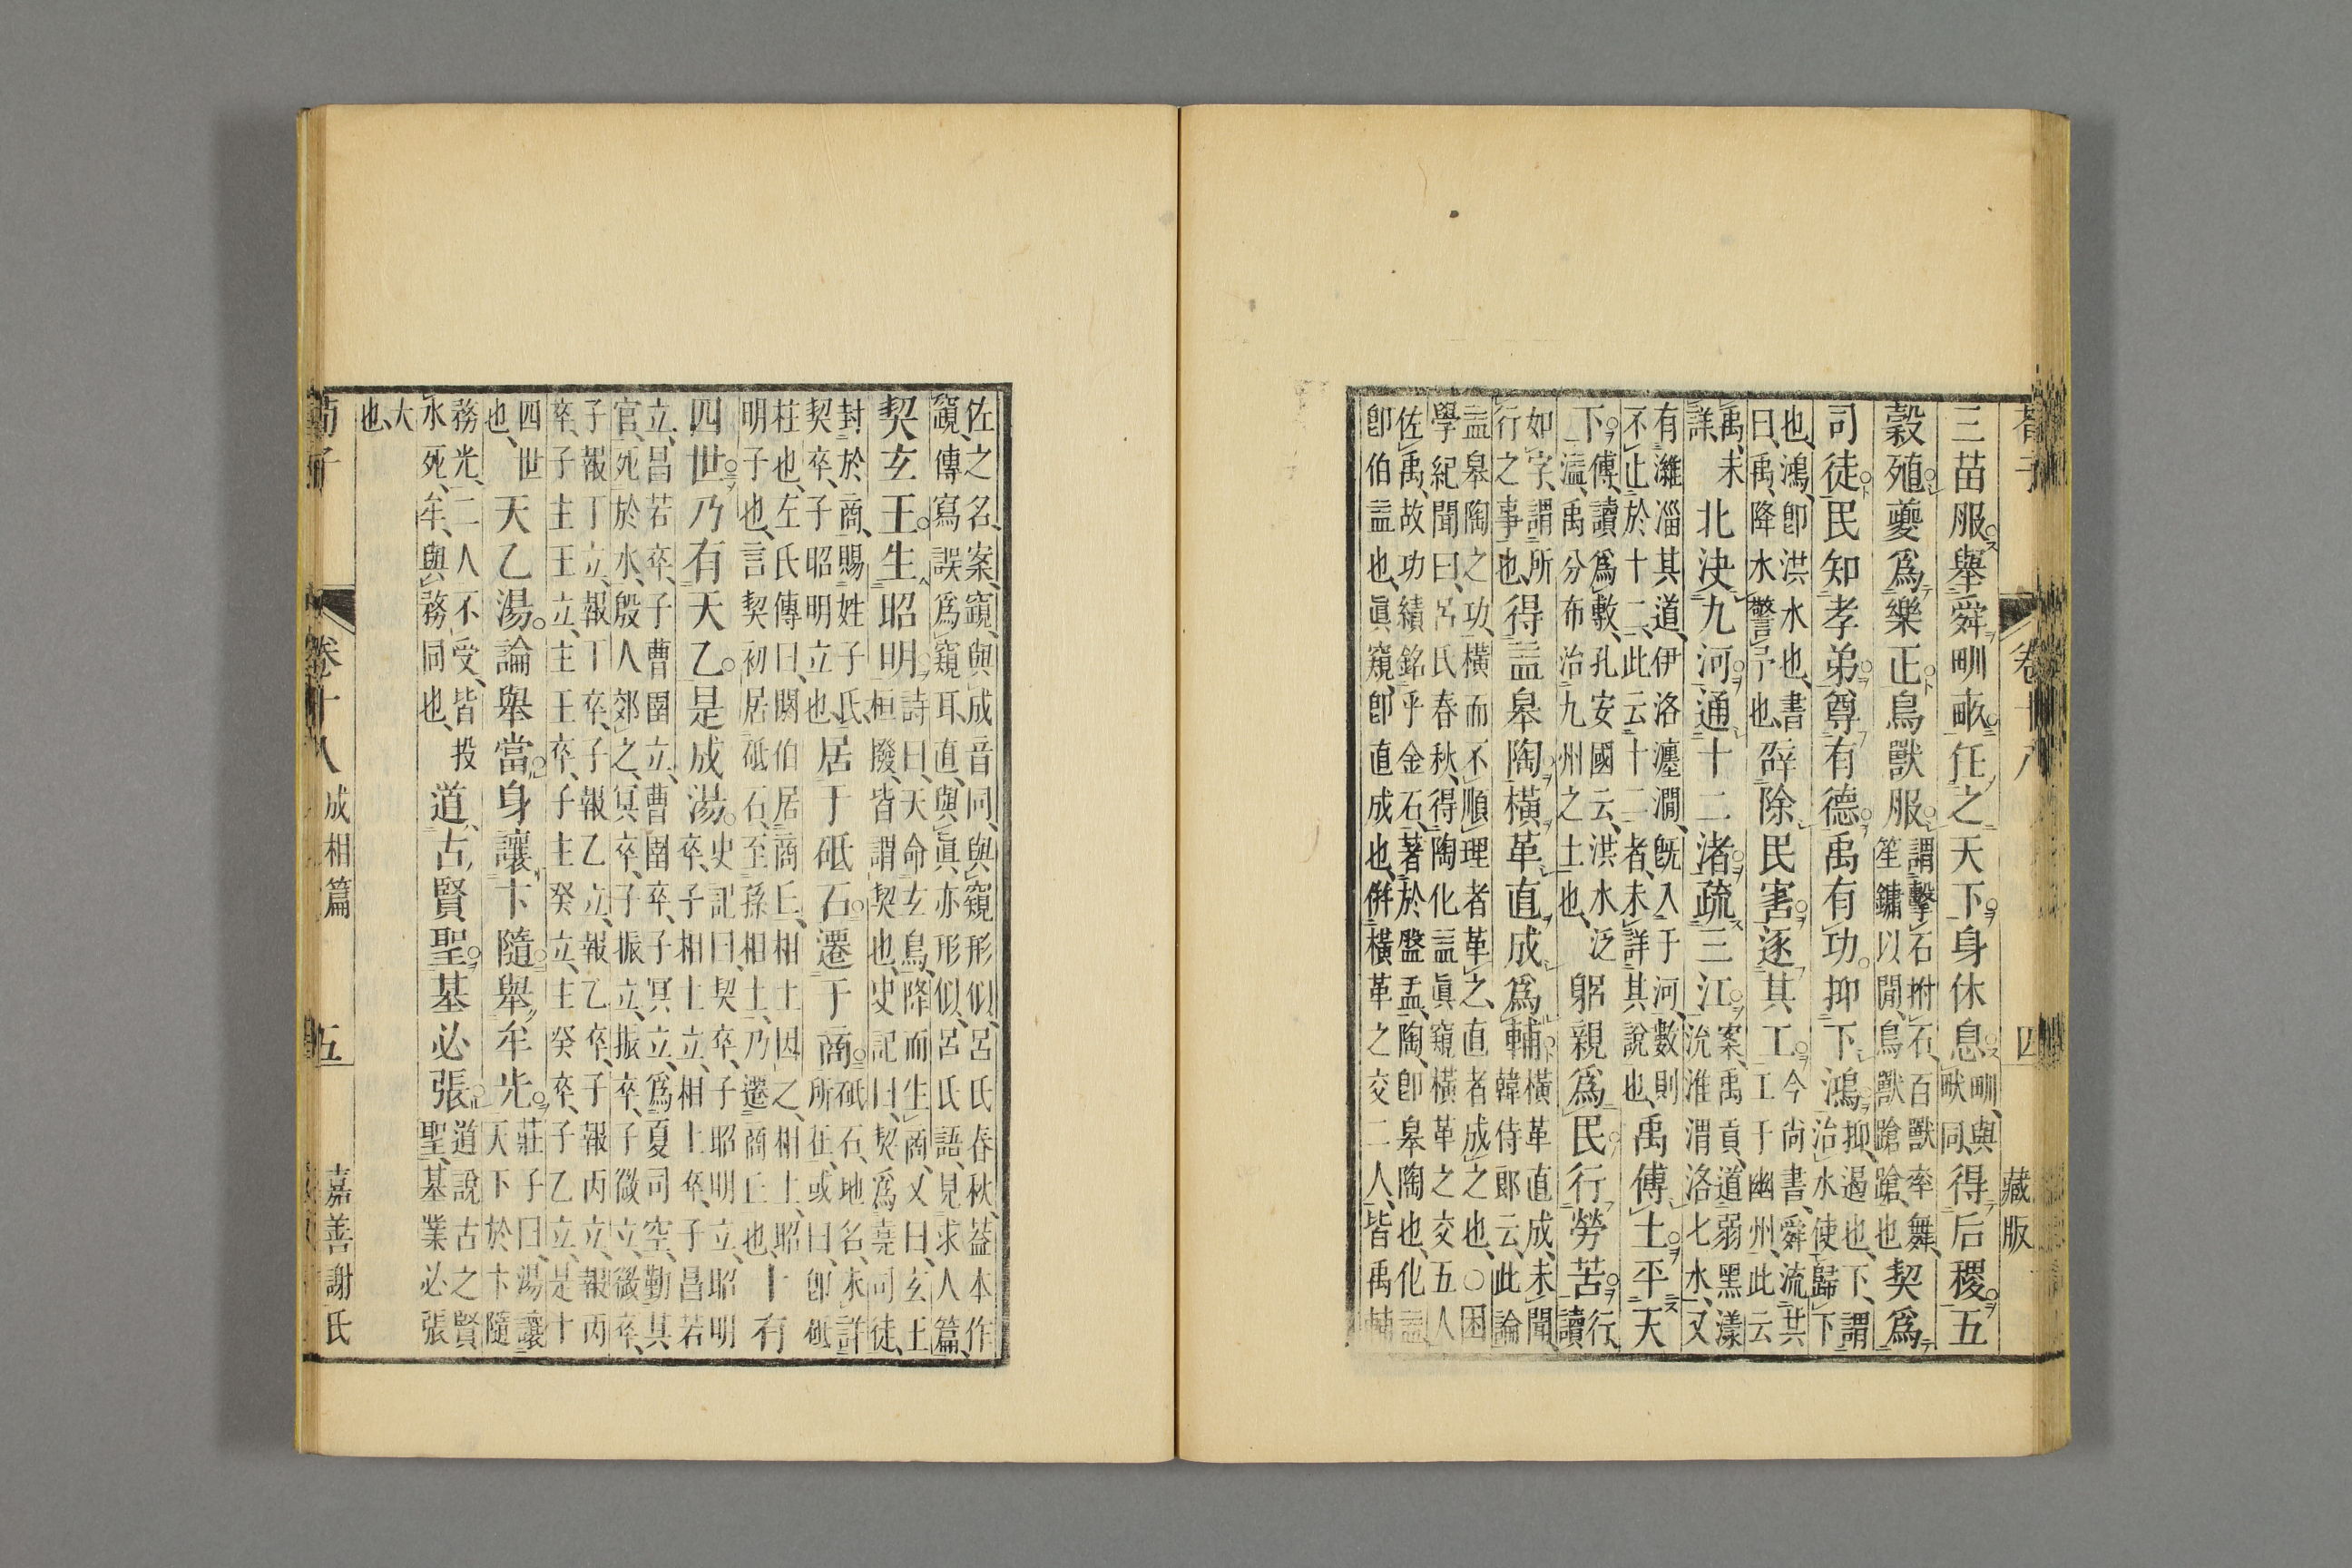 荀子 卷十八 四 藏版
三苗服舉舜甽畝任之天下身休息甽與畎同得后稷五
穀殖夔爲樂正鳥獸服謂擊石拊石百獸率舞笙鏞以閒鳥獸蹌蹌也契爲
司徒民知孝弟尊有德禹有功抑下鴻抑遏也下謂治水使歸下
也鴻卽洪水也書曰禹降水警予也辟除民害逐其工今尚書舜流共工于幽州此云
禹未詳北決九河通十二渚疏三江案禹貢道弱黑漾流淮渭洛七水又
有灉淄其道伊洛瀍澗旣入于河數則不止於十二此云十二者未詳其說也禹傅土平天
下傅讀爲敷孔安國云洪水泛溢禹分布治九州之土也躬親爲民行勞苦行讀
如字謂所行之事也得益皋陶橫革直成爲輔橫革直成未聞韓侍郎云此論
益皋陶之功橫而不順理者革之直者成之也○困學紀聞曰呂氏春秋得陶化益眞窺橫革之交五人
佐禹故功績銘乎金石著於盤盂陶卽皋陶也化益卽伯益也眞窺卽直成也倂橫革之交二人皆禹輔
佐之名案窺與成音同與窺形似呂氏春秋益本作窺傳寫誤爲窺耳直與眞亦形似呂氏語見求人篇
契玄王生昭明詩曰天命玄鳥降而生商又曰玄王桓撥皆謂契也史記曰契爲堯司徒
封於商賜姓子氏契卒子昭明立也居于砥石遷于商砥石地名未詳所在或曰卽砥
柱也左氏傳曰閼伯居商丘相土因之相土昭明子也言契初居砥石至孫相土乃遷商丘也十有
四世乃有天乙是成湯史記曰契卒子昭明立昭明卒子相土立相土卒子昌若
立昌若卒子曹圉立曹圉卒子冥立爲夏司空勤其官死於水殷人郊之冥卒子振立振卒子微立微卒
子報丁立報丁卒子報乙立報乙卒子報丙立報丙卒子主壬立主壬卒子主癸立主癸卒子乙立是十
四世也天乙湯論舉當身讓卞隨舉牟光莊子曰湯讓天下於卞隨
務光二人不受皆投水死牟與務同也道古賢聖基必張道說古之賢聖基業必張
大也
荀子 卷十八 成相篇 五 嘉善謝氏